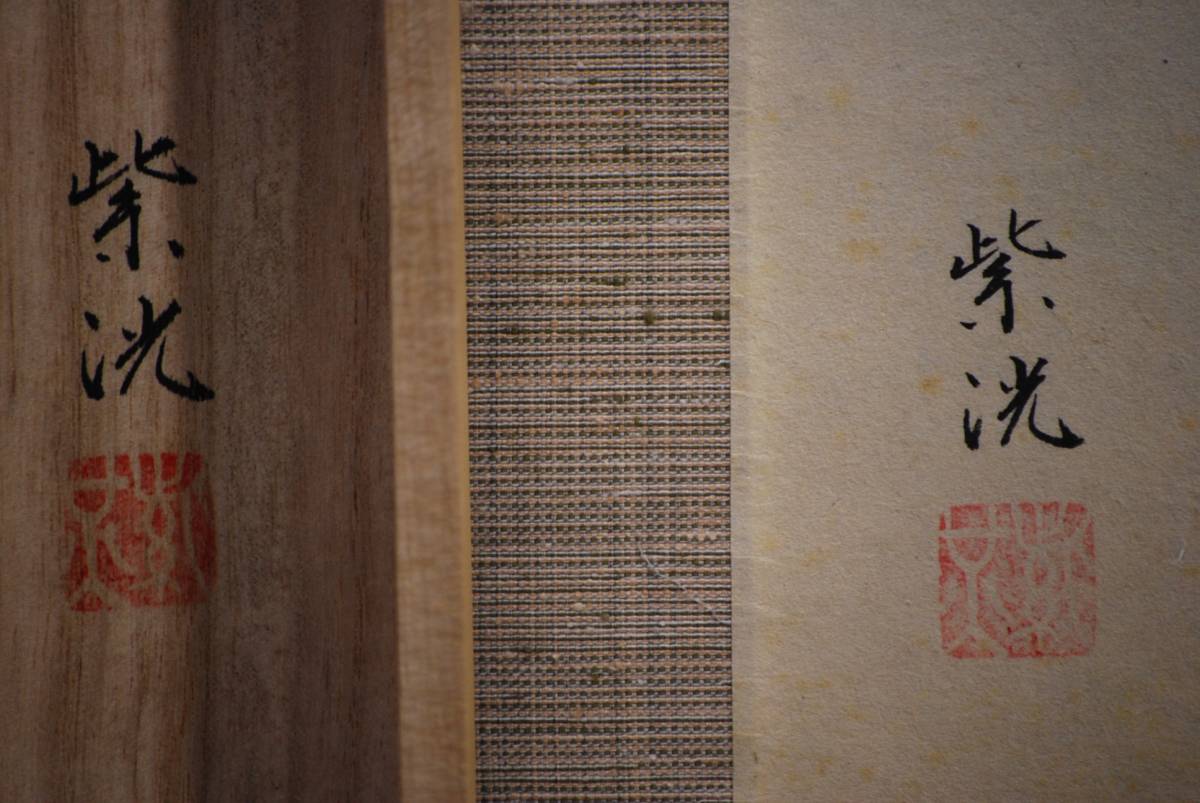 紫洸
紫洸